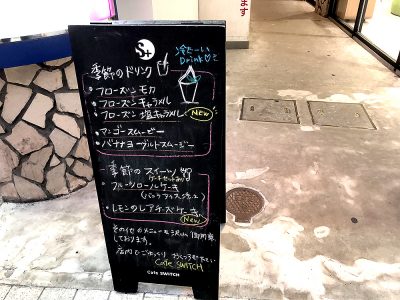 ます
S+
冷たーい
Drink♡
季節のドリンク
・フローズン モカ
・フローズン キャラメル
・フローズン 塩キャラメル NEW
・マンゴースムージー
・バナナヨーグルトスムージー
季節の スイーツ
ケーキセットあり
フルーツロールケーキ
(バニラアイス
・レモンのレアチーズケーキ
New
その他のメニューも沢山 御用意
しております。
店内でごゆっくり おくつろぎ下さい
Cafe SWITCH
Cafe SWITCH